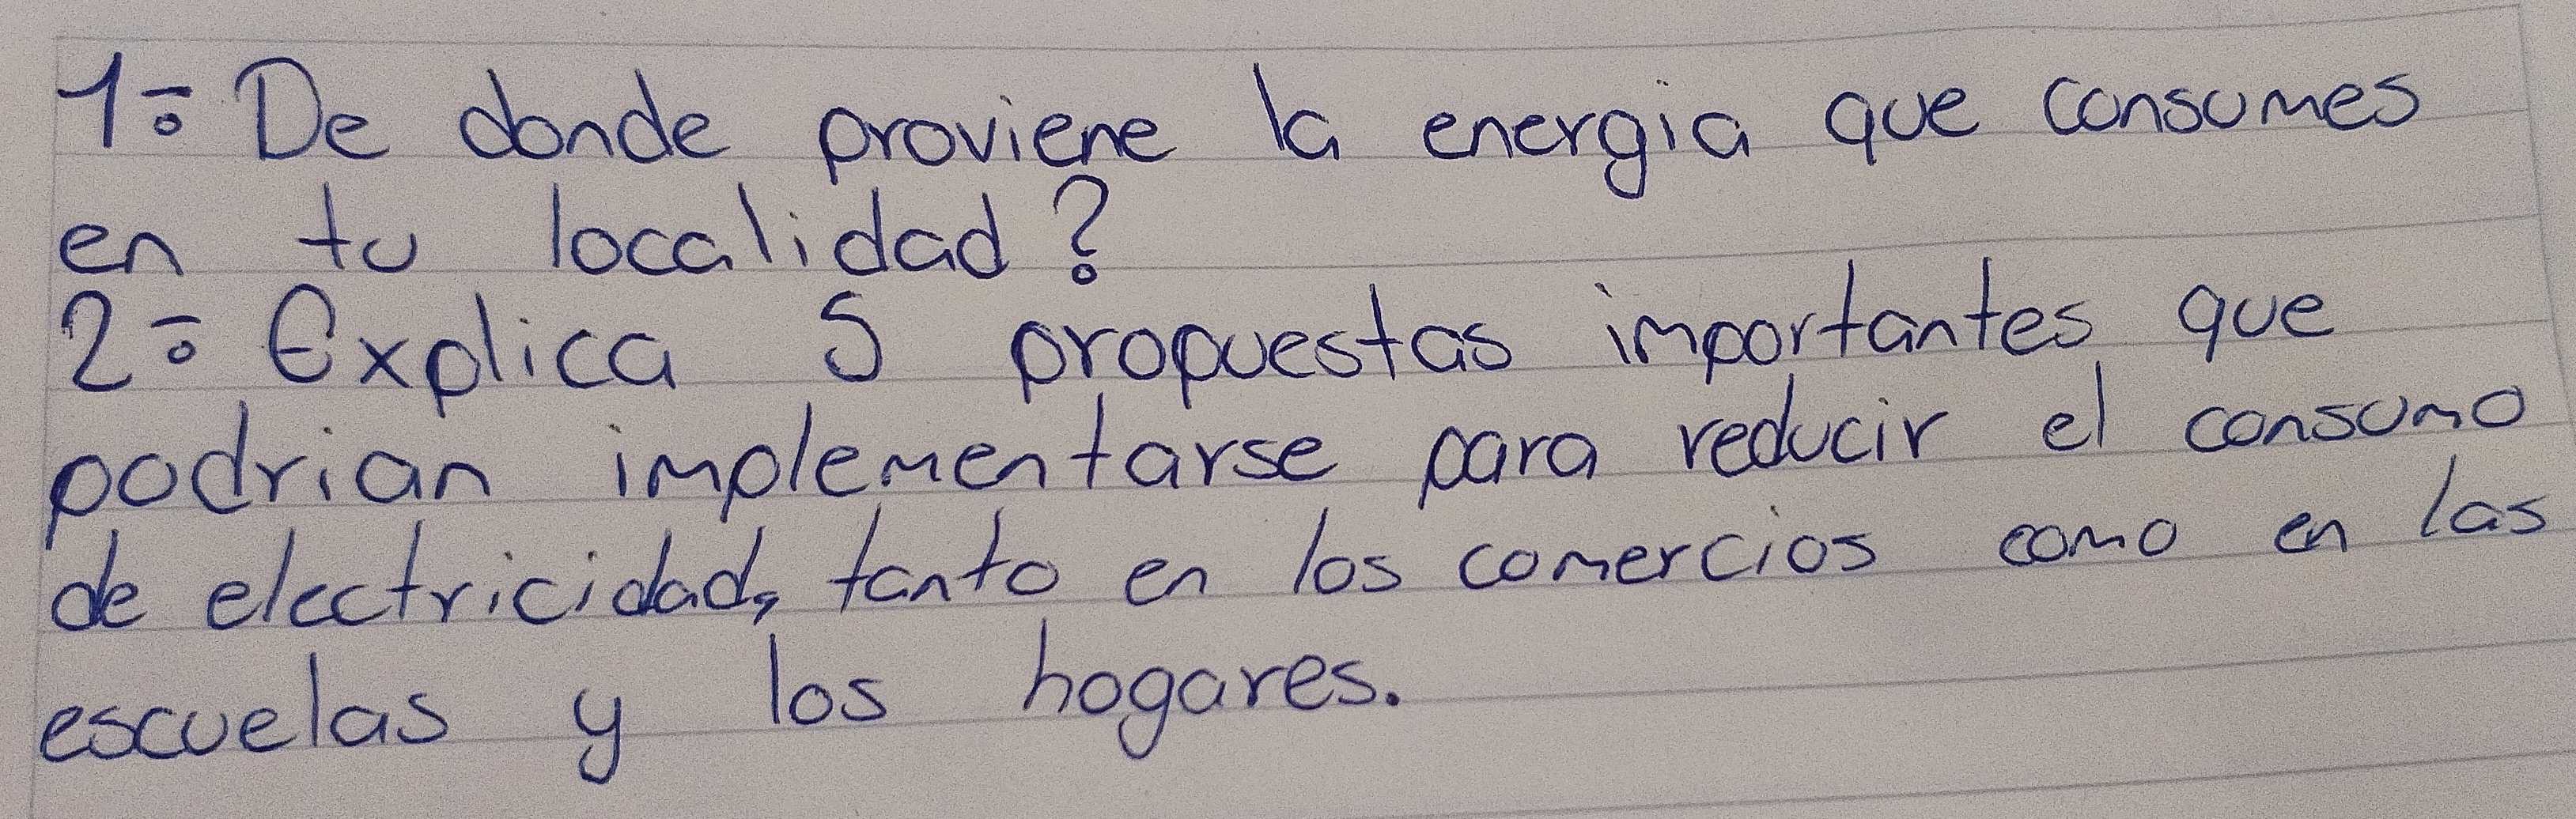 1º De donde proviene la energia que consumes
en tu localidad?
2º Explica 5 propuestas importantes que
podrian implementarse para reducir el consumo
de electricidad, tanto en los comercios como en las
escuelas y los hogares.